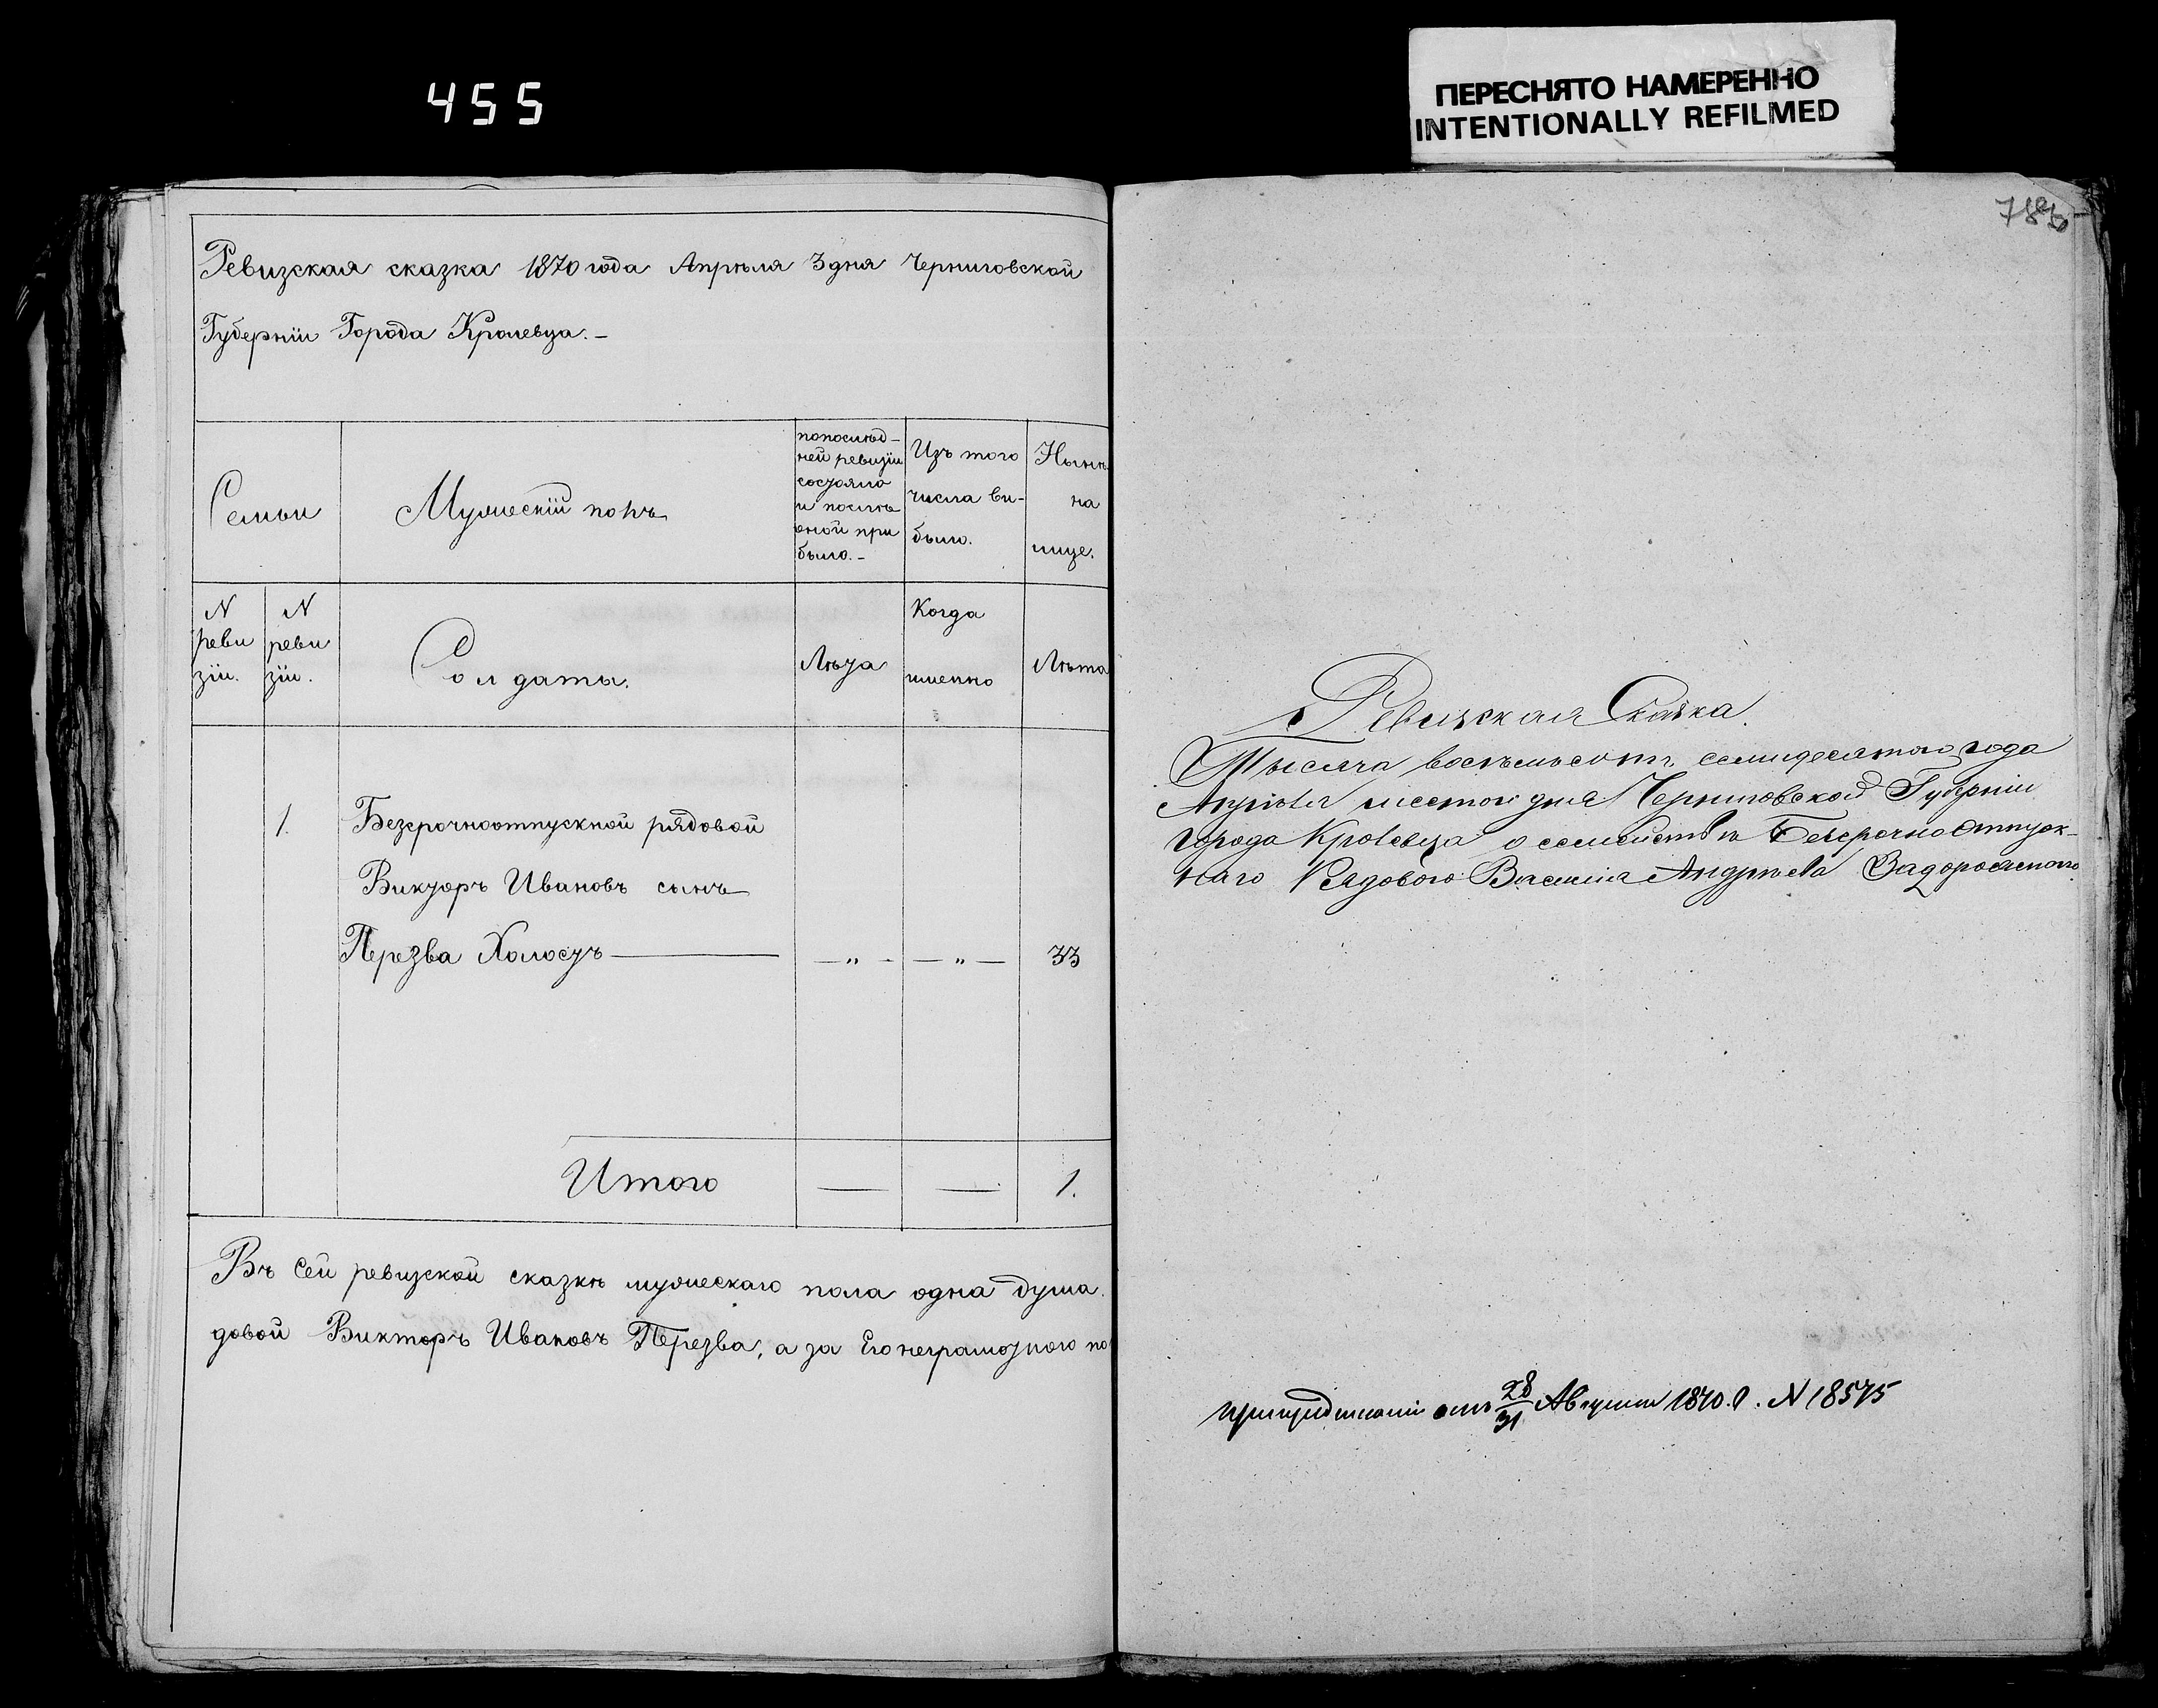 455
ПЕРЕСНЯТО НАМЕРЕННО
INTENTIONALLY REFILMED
Ревизская сказка 1870 года Апрѣля 3 дня Черниговской
Губерніи Города Кролевца.-
Семьи
Мужескій полъ
попослѣд-
ней ревизіи
состояло
и послѣ
оной при
было.-
Изъ того
числа вы-
было.
Нынѣ
на
лице.
N
реви
зіи.
N
реви
зіи.
Солдаты.
Лѣта
Когда
именно
Лѣта
1. Безсрочноотпускной рядовой
Викторъ Ивановъ сынъ
Перезва Холостъ — „ — — „ — 33
Итого — — 1.
Въ сей ревизской сказкѣ мужескаго пола одна душа.
довой Викторъ Ивановъ Перезва, а за Его неграмотного по
Ревизская Сказка.
Тысяча восемьсотъ семидесятого года
Апрѣля шестого дня Черниговской Губерніи
города Кролевца о семействѣ Безсрочно Отпуск-
наго Рядового Василія Андрѣева Задорожного
отъ 28/31 Августа 1870 г. N 18575